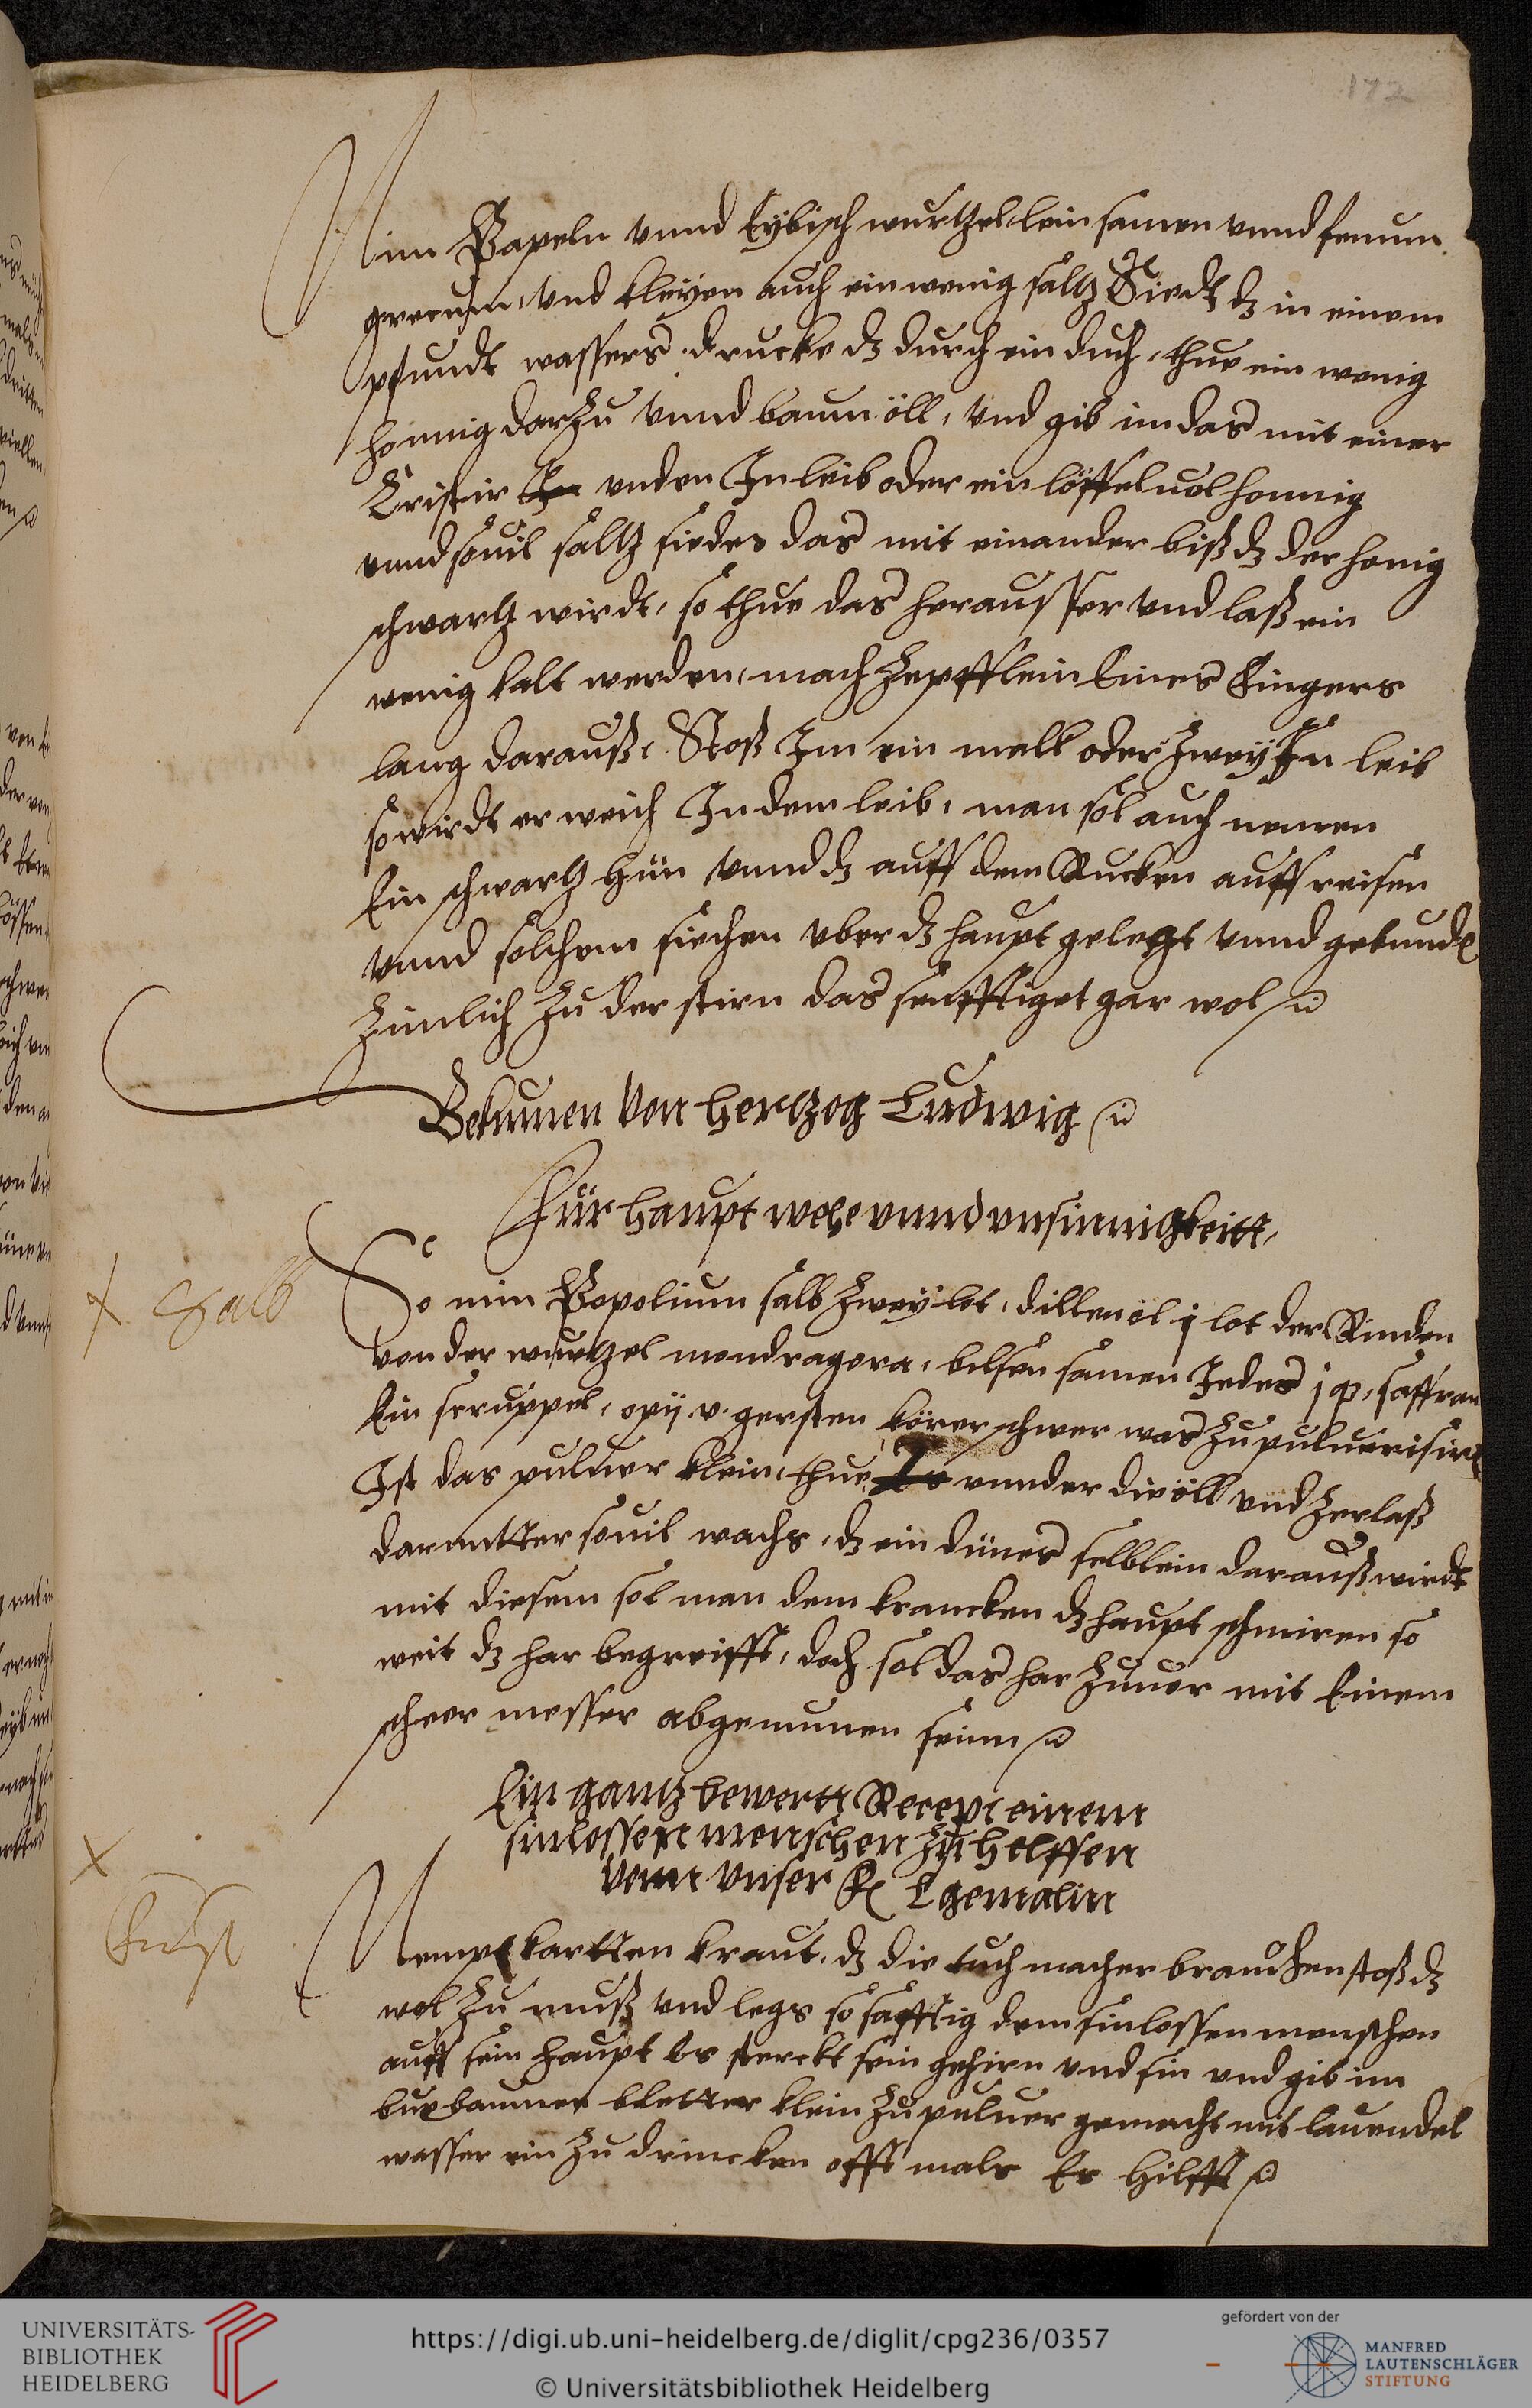 172
Nim Papeln vnnd Eybisch wurtzel lein samen vnnd fenum
grecum, vnd kleyen auch ein wenig saltz Siedt dz in einem
pfundt wassers. drucke dz durch ein duch, thue ein wenig
honnig darzu vnnd baum öll, vnd gib im das mit einer
Cristir vnden In leib oder ein löffel uol honnig
vnnd souil saltz siedes das mit einander biß dz der honig
schwartz wirdt, so thue das herausser vnd laß ein
wenig kalt werden, mach Zepfflein Eines Fingers
lang darauß, Stoß Im ein mall oder zwey In leib
so wirdt er weich In dem leib, man sol auch nemen
Ein schwartz hün vnnd dz auff dem Rucken auff reisen
vnnd solchem siechen vber dz haupt gelegt vnnd gebunden
Zimlich Zu der stirn das senfftiget gar wol
Bekumen Von hertzog Ludwig
Für haupt wehe vnnd vnsinnigkeitt,
Salb
So nim Popolium salb zwey lot, dillen öl j lot der Rinden
von der wurtzel mondragora, bilsen samen Jedes j q, saffran
Ein scruppel, opij. v. gersten körer schwer was zu puluerisirn
Ist das puluer klein, thue Es vnnder die öll vnd zerlaß
daruntter souil wachs, dz ein dünes selblein darauß wirdt
mit diesem sol man dem krancken dz haupt schmiren so
weit dz har begreifft, doch sol das har zuuor mit Einem
scher messer abgenumen seinn
Ein gantz bewertt Recept einem
sinlossen menschen zu helffen
vonn vnser F L gemalin
Nempt kartten kraut, dz die tuch macher brauchen stoß dz
wol zu muß vnd legs so safftig dem sinlossen menschen
auff sein haupt Es sterckt sein gehirn vnd sin vnd gib im
buxbaumen bletter klein zu puluer gemacht mit lauendel
wasser ein zu drincken offt mals Es hilfft
UNIVERSITÄTS-
BIBLIOTHEK
HEIDELBERG
https://digi.ub.uni-heidelberg.de/diglit/cpg236/0357
© Universitätsbibliothek Heidelberg
gefördert von der
MANFRED
LAUTENSCHLÄGER
STIFTUNG